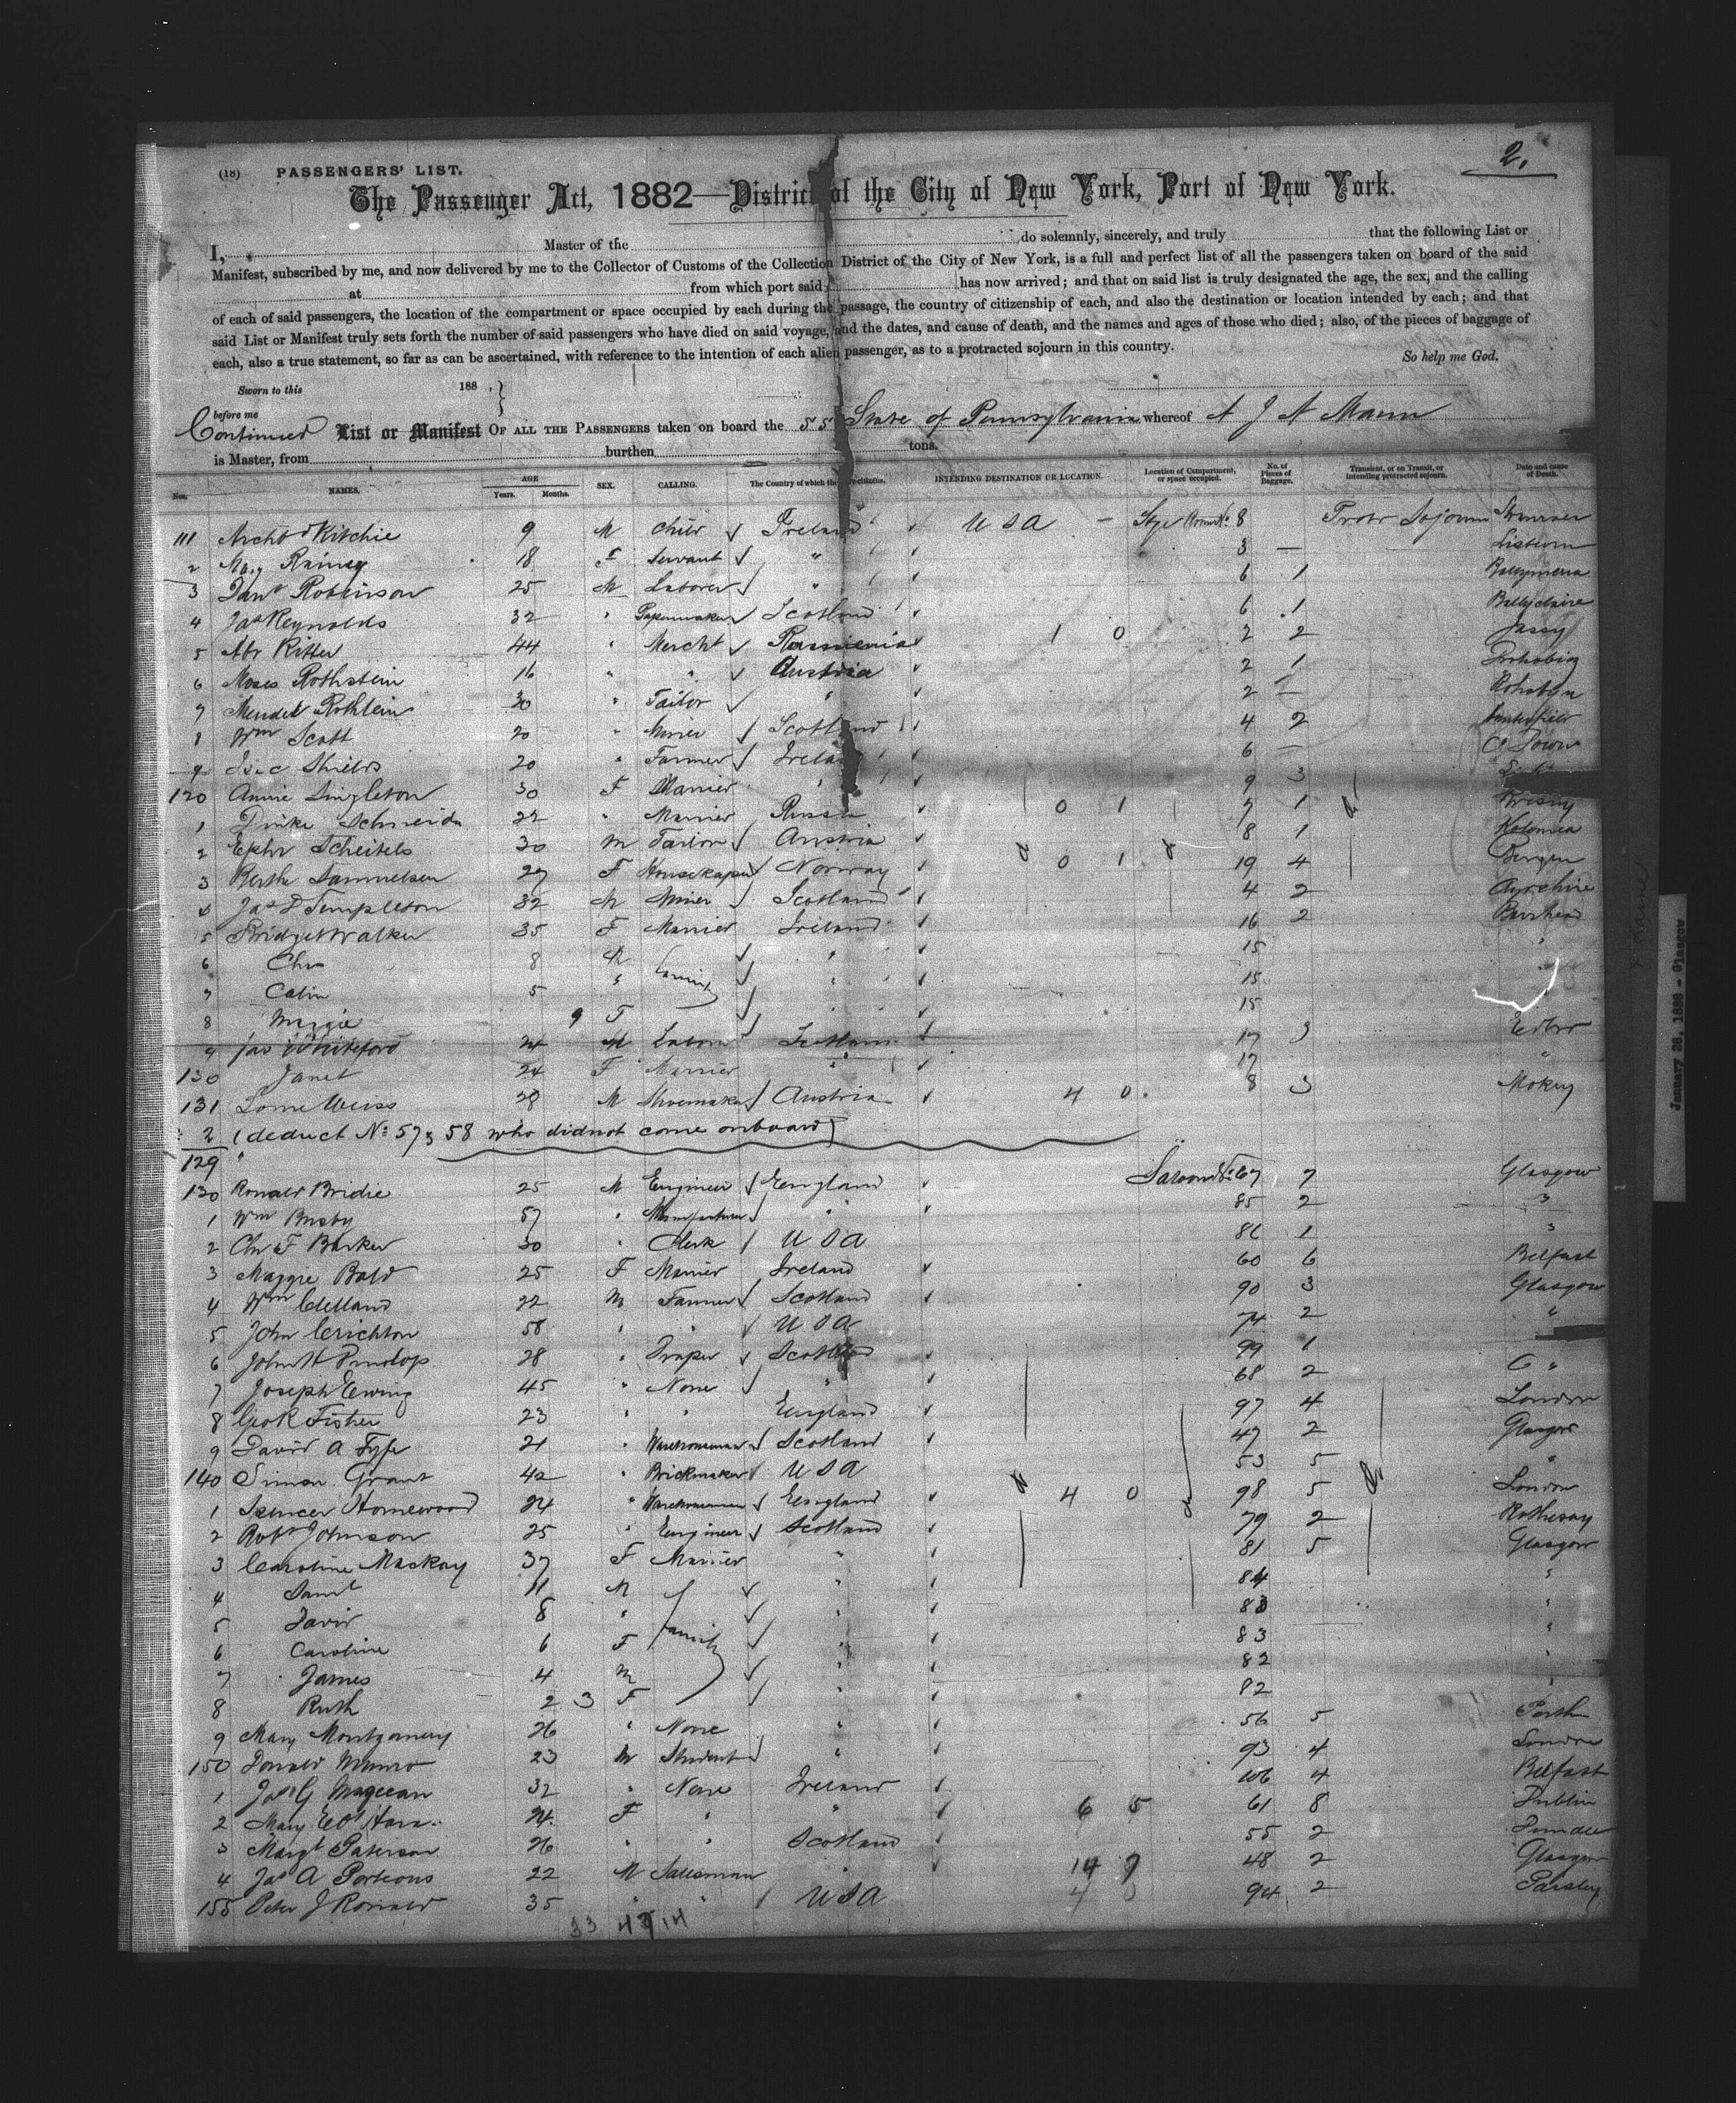 2.
(18) PASSENGERS' LIST.
The Passenger Act, 1882—District of the City of New York, Port of New York.
I, Master of the do solemnly, sincerely, and truly that the following List or
Manifest, subscribed by me, and now delivered by me to the Collector of Customs of the Collection District of the City of New York, is a full and perfect list of all the passengers taken on board of the said
at from which port said has now arrived; and that on said list is truly designated the age, the sex, and the calling
of each of said passengers, the location of the compartment or space occupied by each during the passage, the country of citizenship of each, and also the destination or location intended by each; and that
said List or Manifest truly sets forth the number of said passengers who have died on said voyage, and the dates, and cause of death, and the names and ages of those who died; also, of the pieces of baggage of
each, also a true statement, so far as can be ascertained, with reference to the intention of each alien passenger, as to a protracted sojourn in this country. So help me God.
Sworn to this 188 , }
before me
Continued List or Manifest OF ALL THE PASSENGERS taken on board the SS State of Pennsylvania whereof A J A Mann
is Master, from burthen tons.
Nos. NAMES. AGE Years. Months. SEX. CALLING. The Country of which they are citizens. INTENDING DESTINATION OR LOCATION. Location of Compartment, or space occupied. No. of Pieces of Baggage. Transient, or on Transit, or intending protracted sojourn. Date and cause of Death.
111 Archd Ritchie 9 M Child Ireland USA 8 Protr Sojourn
2 Mary Rainey 18 F Servant " 3 — Lisburn
3 Danl Robinson 25 M Laborer " 6 1 Ballymena
4 Jas Reynolds 32 " Papermaker Scotland 6 1 Ballyclare
5 Abr Ritter 44 " Mercht Roumenia 1 0 2 2 Jassy
6 Moses Rothstein 16 " " Austria 2 1
7 Mendel Rothlein 30 " Tailor " 2 —
8 Wm Scott 20 " Miner Scotland 4 2
9 Isac Shields 20 " Farmer Ireland 6 — Co Down
120 Annie Singleton 30 F Married " 9 3
1 Schneider 22 " Married Russia 0 1 7 1
2 Ephr Scheitels 30 M Tailor Austria 8 1 Kolomea
3 Berthe Samuelsen 27 F Housekeeper Norway 0 1 19 4 Bergen
4 Jas D Templeton 32 M Miner Scotland 4 2 Ayrshire
5 Bridget Walker 35 F Married Ireland 16 2 Barrhead
6 Chs 8 M " 15 "
7 Catin 5 " family " 15
8 Maggie 9 F 15
9 Jas Whiteford 24 M Labourer Scotland 17 3 Edbro
130 Janet 24 F Married " 17 "
131 Weiss 28 M Shoemaker Austria 4 0 8 3
2 (deduct No 57 & 58 who did not come onboard)
129 "
130 Ronald Bridie 25 M Engineer England Saloon No 67 7 Glasgow
1 Wm Busby 57 " Manufacturer " 85 2 "
2 Chs F Barker 30 " Clerk USA 86 1 "
3 Maggie Bald 25 F Married Ireland 60 6 Belfast
4 Wm Clelland 22 M Farmer Scotland 90 3 Glasgow
5 John Crichton 58 " " USA 74 2 "
6 John H Dunlop 28 " Draper Scotland 99 1
7 Joseph Ewing 45 " None " 68 2 "
8 Geo R Fisher 23 " " England 97 4 London
9 David A Fyfe 21 " Warehouseman Scotland 47 2 Glasgow
140 Simon Grant 42 " Brickmaker USA 53 5 "
1 Spencer Homewood 24 " Warehouseman England 4 0 98 5 London
2 Robt Johnson 25 " Engineer Scotland 79 2 Rothesay
3 Caroline Mackay 37 F Married " 81 5 Glasgow
4 Saml 11 M " 84 "
5 David 8 " " 83 "
6 Caroline 6 F family " 83 "
7 James 4 M " 82 "
8 Ruth 2 3 F " 82 "
9 Mary Montgomery 26 " None " 56 5 Perth
150 Donald Munro 23 M Student " 93 4 London
1 Jas G Mageean 32 " None Ireland 106 4 Belfast
2 Mary E O'Hara 24 F " " 6 5 61 8 Dublin
3 Margt Paterson 26 " " Scotland 55 2 Dundee
4 Jas A Porteous 22 M Salesman " 14 9 48 2 Glasgow
155 Peter J Ronald 35 " " USA 4 0 94 2 Paisley
33 14
January 28, 1889 - Glasgow